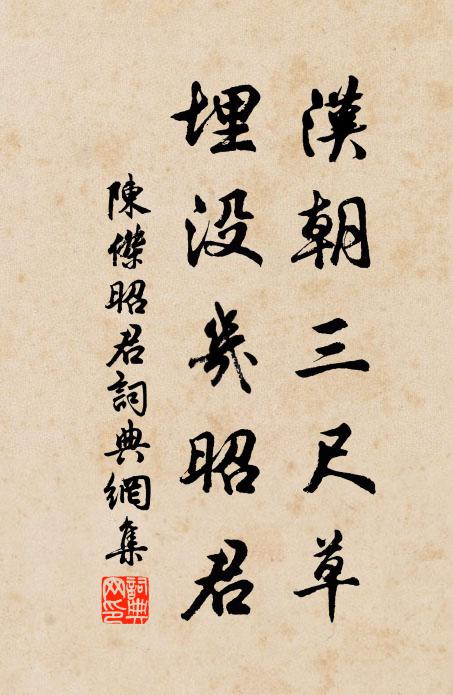 漢朝三尺草
埋没幾昭君
陳傑昭君詞典網集
詞典网印